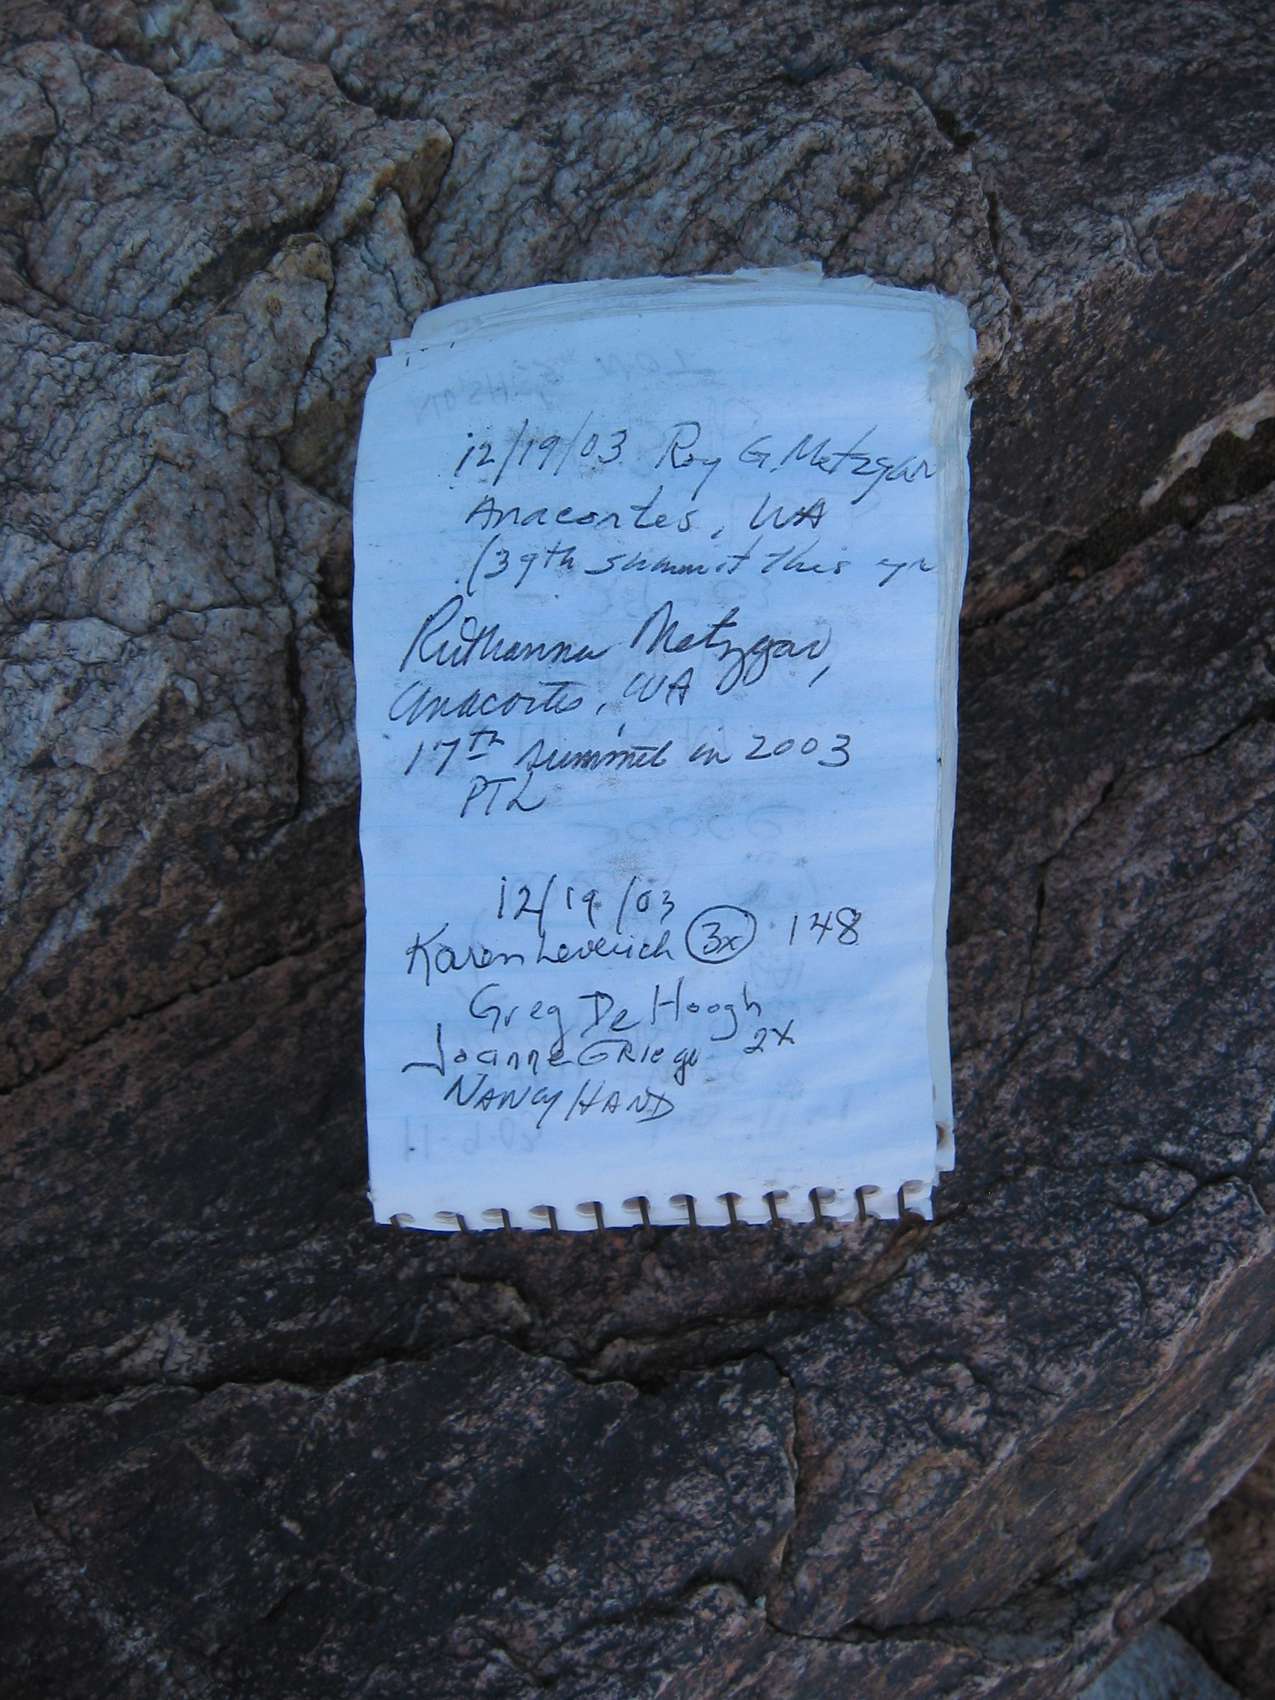 12/19/03 Roy G. Metzgar
Anacortes, WA
(39th summit this yr
Ruthanna Metzgar,
Anacortes, WA
17th summit in 2003
PTL
12/19/03
Karen Leverich 3x 148
Greg De Hoogh
Joanne Griego 2x
NANCY HAND